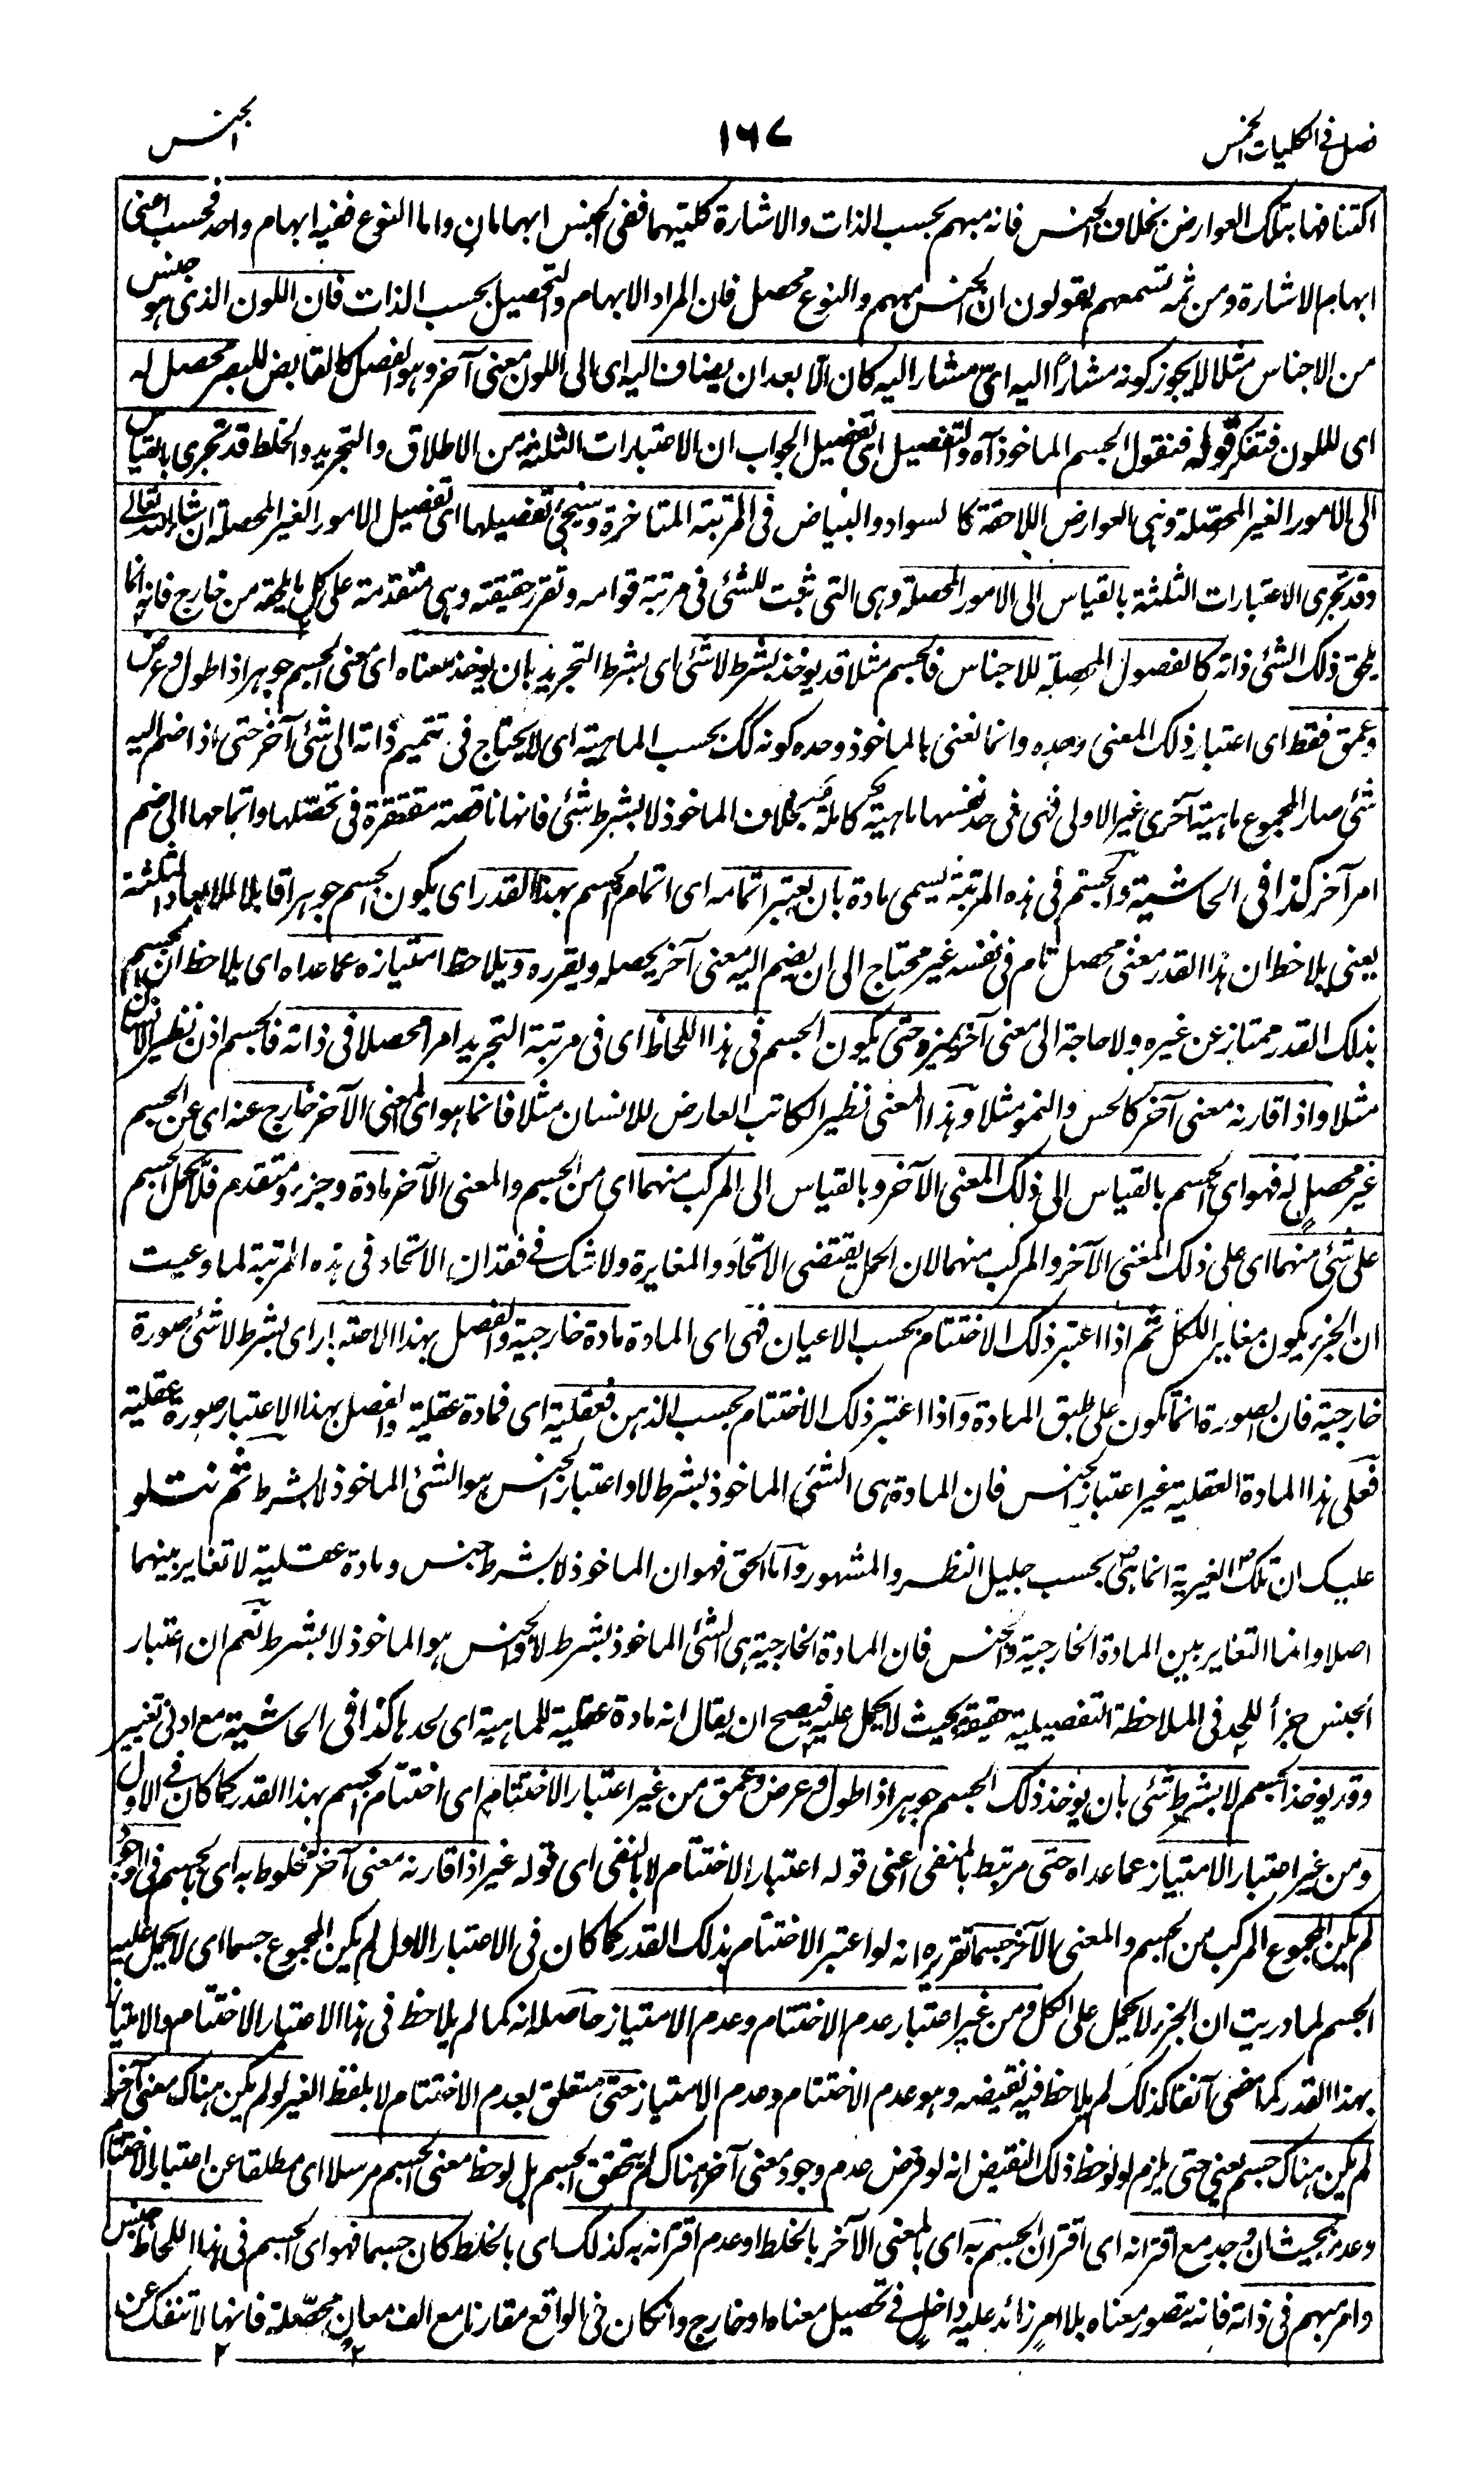 فصل فی الکلیات الخمس
١٦٧
الجنس
اکتنافها بتلک العوارض بخلاف الجنس فانه مبهم بحسب الذات والاشارة کلتیهما ففی الجنس ابهامان واما النوع ففیه ابهام واحد فحسب اعنی
ابهام الاشارة ومن ثمه تسمعهم یقولون ان الجنس مبهم والنوع محصل فان المراد الابهام والتحصیل بحسب الذات فان اللون الذی هو جنس
من الاجناس مثلا لا یجوز کونه مشارًا الیه ای مشار الیه کان الّا بعد ان یضاف الیه ای الی اللون معنی آخر وهو الفصل کالقابض للبصر محصل له
ای للون فتفکر قوله فنقول الجسم الماخوذ آه والتفصیل ای تفصیل الجواب ان الاعتبارات الثلثة من الاطلاق والتجرید والخلط قد تجری بالقیاس
الی الامور الغیر المحصّلة وهی العوارض اللاحقة کالسواد والبیاض فی المرتبة المتاخرة وسیجیٔ تفصیلها ای تفصیل الامور الغیر المحصلة ان شاء الله تعالی
وقد تجری الاعتبارات الثلثة بالقیاس الی الامور المحصلة وهی التی ثبت للشئ فی مرتبة قوامه وتقرر حقیقته وهی متقدمة علی کل ما یلحقه من خارج فانه انما
یلحق ذلک الشئ ذاته کالفصول المحصلة للاجناس فالجسم مثلا قد یوخذ بشرط لا شئ ای بشرط التجرید بان یوخذ معناه ای معنی الجسم جوهرا ذا طول وعرض
وعمق فقط ای اعتبار ذلک المعنی وحده وانما نعنی بالماخوذ وحده کونه کک بحسب الماهیة ای لا یحتاج فی تتمیم ذاته الی شئ آخر حتی اذا ضم الیه
شئ صار المجموع ماهیة اخری غیر الاولی فهی فی حد نفسها ماهیة کاملة بخلاف الماخوذ لا بشرط شئ فانها ناقصة مفتقرة فی تحصّلها واتمامها الی ضم
امر آخر کذا فی الحاشیة والجسم فی هذه المرتبة یسمی مادة بان یعتبر اتمامه ای اتمام الجسم بهذا القدر ای یکون الجسم جوهرا قابلا للابعاد الثلثة
یعنی یلاحظ ان هذا القدر معنی محصل تام فی نفسه غیر محتاج الی ان یضم الیه معنی آخر یحصله ویقرره ویلاحظ امتیازه عما عداه ای یلاحظ ان الجسم
بذلک القدر ممتاز عن غیره ولا حاجة الی معنی آخر یمیزه حتی یکون الجسم فی هذا اللحاظ ای فی مرتبة التجرید امرا محصلا فی ذاته فالجسم اذن نظیر الانسان
مثلا واذا قارنه معنی آخر کالحس والنمو مثلا وهذا المعنی نظیر الکاتب العارض للانسان مثلا فانما هو ای المعنی الآخر خارج عنه ای عن الجسم
غیر محصل له فهو ای الجسم بالقیاس الی ذلک المعنی الآخر وبالقیاس الی المرکب منهما ای من الجسم والمعنی الآخر مادة وجزء ومتقدم فلا یحمل الجسم
علی شئ منهما ای علی ذلک المعنی الآخر والمرکب منهما لان الحمل یقتضی الاتحاد والمغایرة ولا شک فی فقدان الاتحاد فی هذه المرتبة لما وعیت
ان الجزء یکون مغایرا للکل ثم اذا اعتبر ذلک الاختتام بحسب الاعیان فهی ای المادة مادة خارجیة والفصل بهذا الاعتبار ای بشرط لا شئ صورة
خارجیة فان الصورة انما تکون علی طبق المادة واذا اعتبر ذلک الاختتام بحسب الذهن فعقلیة ای فمادة عقلیة والفصل بهذا الاعتبار صورة عقلیة
فعلی هذا المادة العقلیة غیر اعتبار الجنس فان المادة هی الشئ الماخوذ بشرط لا واعتبار الجنس هو الشئ الماخوذ لا بشرط ثم نتلو
علیک ان تلک الغیریة انما هی بحسب جلیل النظر والمشهور واما الحق فهو ان الماخوذ لا بشرط جنس ومادة عقلیة لا تغایر بینهما
اصلا وانما التغایر بین المادة الخارجیة والجنس فان المادة الخارجیة هی الشئ الماخوذ بشرط لا والجنس هو الماخوذ لا بشرط نعم ان اعتبار
الجنس جزأ للحد فی الملاحظة التفصیلیة حقیقة بحیث لا یحمل علیه فیصح ان یقال انه مادة عقلیة للماهیة ای لحدها کذا فی الحاشیة مع ادنی تغییر
وقد یوخذ الجسم لا بشرط شئ بان یوخذ ذلک الجسم جوهرا ذا طول وعرض وعمق من غیر اعتبار الاختتام ای اختتام الجسم بهذا القدر کما کان فی الاول
ومن غیر اعتبار الامتیاز عما عداه حتی مرتبط بالمنفی اعنی قوله اعتبار الاختتام لا بالنفی ای قوله غیر اذا قارنه معنی آخر مخلوط به ای بالجسم فی الوجود
لم یکن المجموع المرکب من الجسم والمعنی الآخر جسما تقریره انه لو اعتبر الاختتام بذلک القدر کما کان فی الاعتبار الاول لم یکن المجموع جسما ای لا یحمل علیه
الجسم لما دریت ان الجزء لا یحمل علی الکل ومن غیر اعتبار عدم الاختتام وعدم الامتیاز حاصله انه کما لم یلاحظ فی هذا الاعتبار الاختتام والامتیاز
بهذا القدر کما مضی آنفا کذلک لم یلاحظ فیه نقیضه وهو عدم الاختتام وعدم الامتیاز حتی متعلق بعدم الاختتام لا بلفظ الغیر لو لم یکن هناک معنی آخر
لم یکن هناک جسم یعنی حتی یلزم لو لوحظ ذلک النقیض انه لو فرض عدم وجود معنی آخر هناک لم یتحقق الجسم بل لوحظ معنی الجسم مرسلا ای مطلقا عن اعتبار الاختتام
وعدمه بحیث ان وجد مع اقترانه ای اقتران الجسم به ای بالمعنی الآخر بالخلط او عدم اقترانه به کذلک ای بالخلط کان جسما فهو ای الجسم فی هذا اللحاظ جنس
وامر مبهم فی ذاته فانه یتصور معناه بلا امر زائد علیه داخل فی تحصیل معناه او خارج وان کان فی الواقع مقارنا مع الف معان محصّلة فانها لا تنفک عن